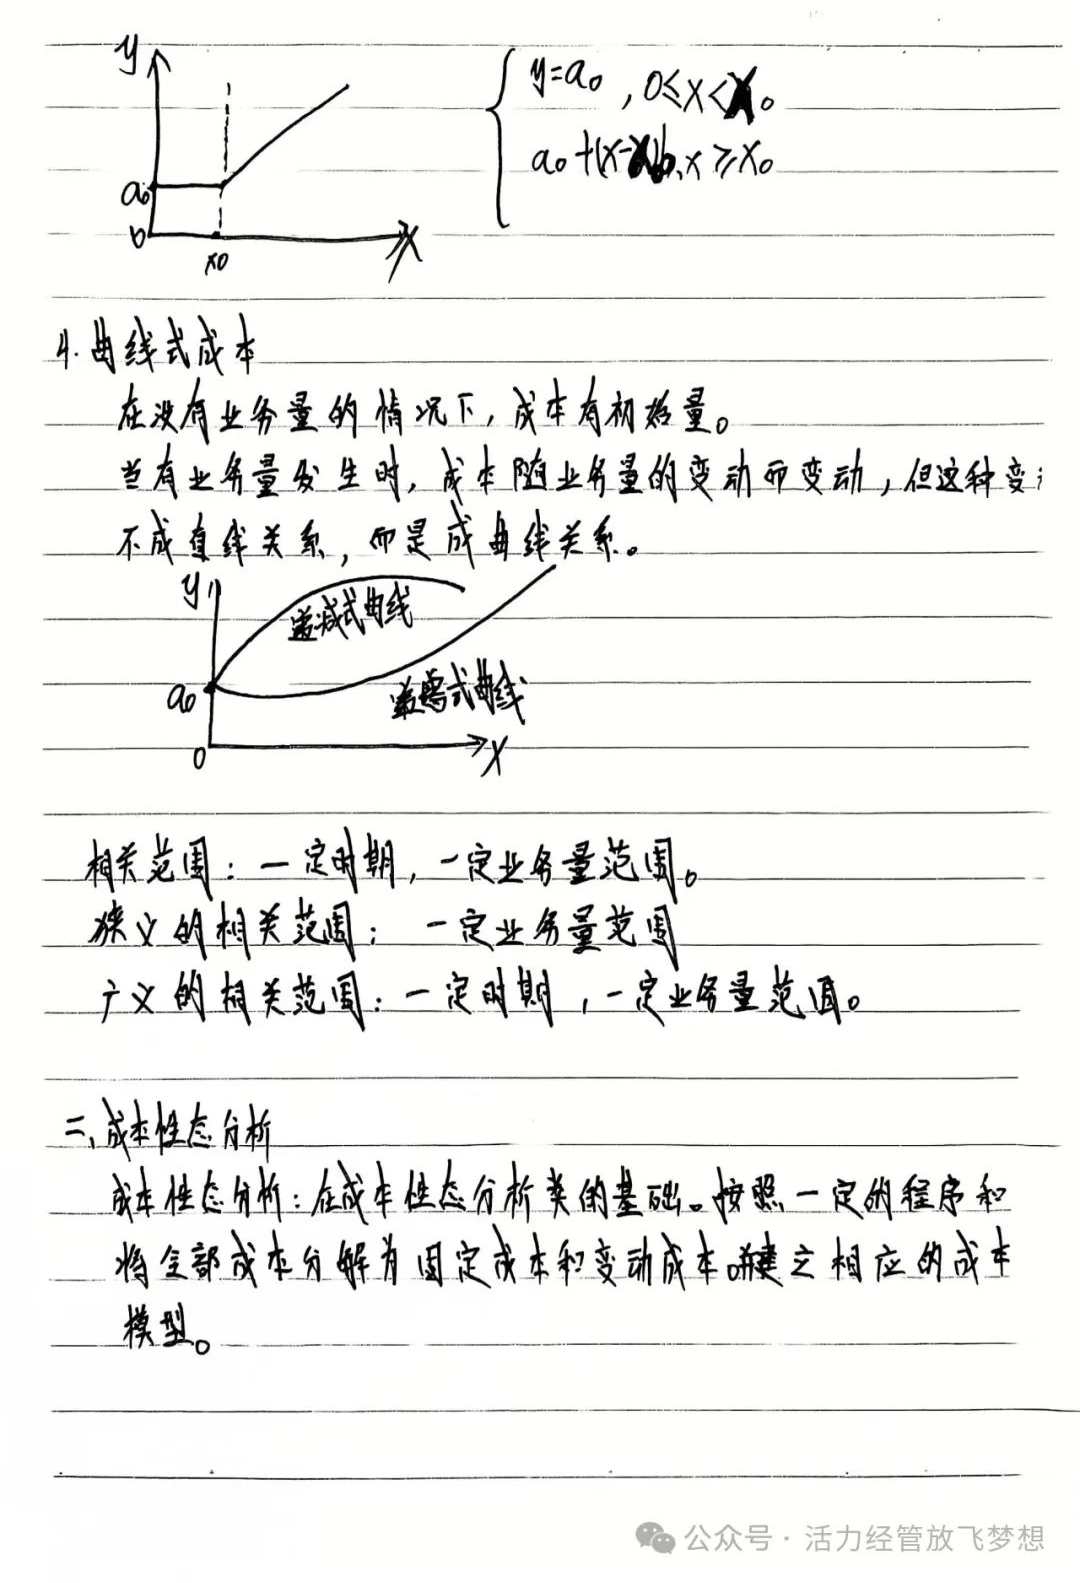 y
y=a₀ , 0≤x<x₀
a₀+(x-x₀)b, x≥x₀
a₀
0
x₀
x
4.曲线式成本
在没有业务量的情况下,成本有初始量。
当有业务量发生时,成本随业务量的变动而变动,但这种变
不成直线关系,而是成曲线关系。
y
递减式曲线
a₀
式曲线
0
x
相关范围:一定时期,一定业务量范围。
狭义的相关范围:一定业务量范围
广义的相关范围:一定时期,一定业务量范围。
二、成本性态分析
成本性态分析:在成本性态分析类的基础。按照一定的程序和
将全部成本分解为固定成本和变动成本。并建立相应的成本
模型。
公众号·活力经管放飞梦想